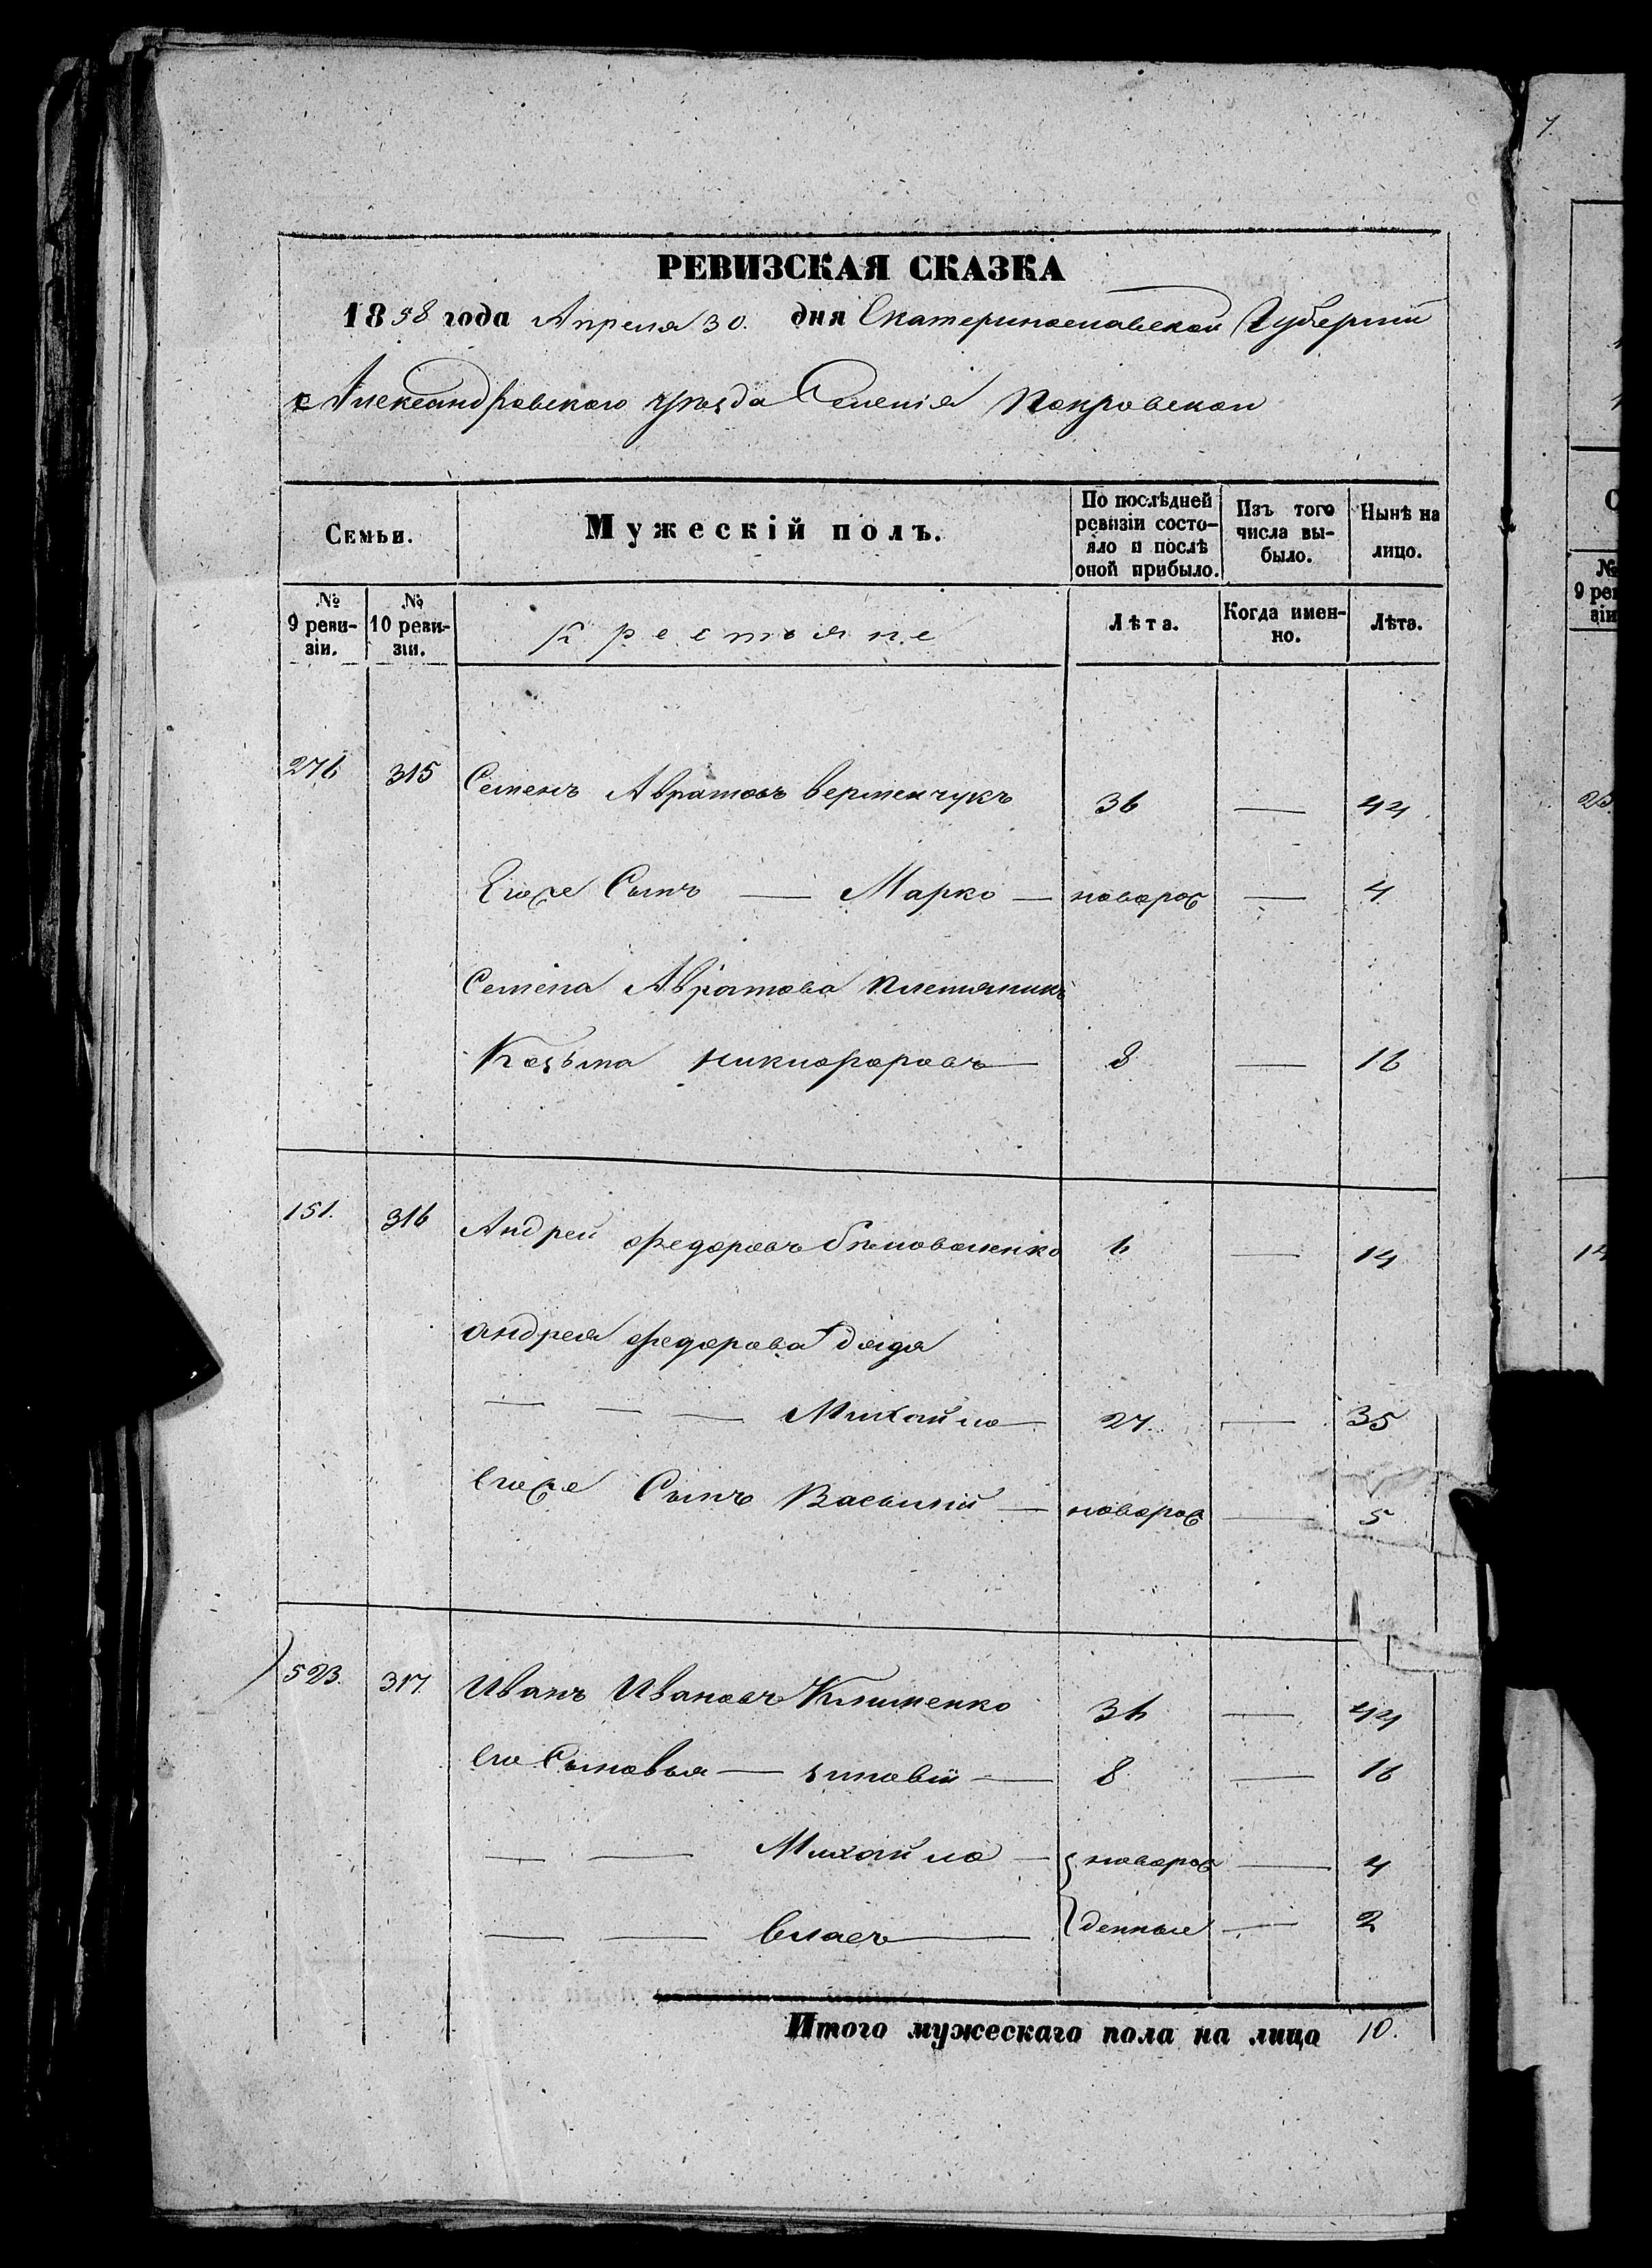 РЕВИЗСКАЯ СКАЗКА
1858 года Апреля 30. дня Екатеринославской Губернии
Александровского уѣзда Селенія Покровскои
Семьи.
Мужескій полъ.
По послѣдней ревизіи состояло и послѣ оной прибыло.
Изъ того числа выбыло.
Нынѣ на лицо.
№ 9 ревизіи.
№ 10 ревизіи.
Крестьяне
Лѣта.
Когда именно.
Лѣта.
276 315 Семенъ Авратовъ Вермечукъ 36 — 44
Егоже Сынъ — Марко — новорож — 4
Семена Авратова племяникъ
Козьма Никифоровъ — 8 — 16
151. 316 Андрей Федоровъ Бѣловоленко 6 — 14
Андрея Федорова дядя
— — — Михайло — 27. — 35
Егоже Сынъ Васылій — новорож — 5
523. 317. Иванъ Ивановъ Клименко 36 — 44
Его Сыновья — Зиновій — 8 — 16
— — Михайло — новорож — 4
— — Власъ — денные — 2
Итого мужескаго пола на лицо 10.
7.
№ 9 реви
зіи